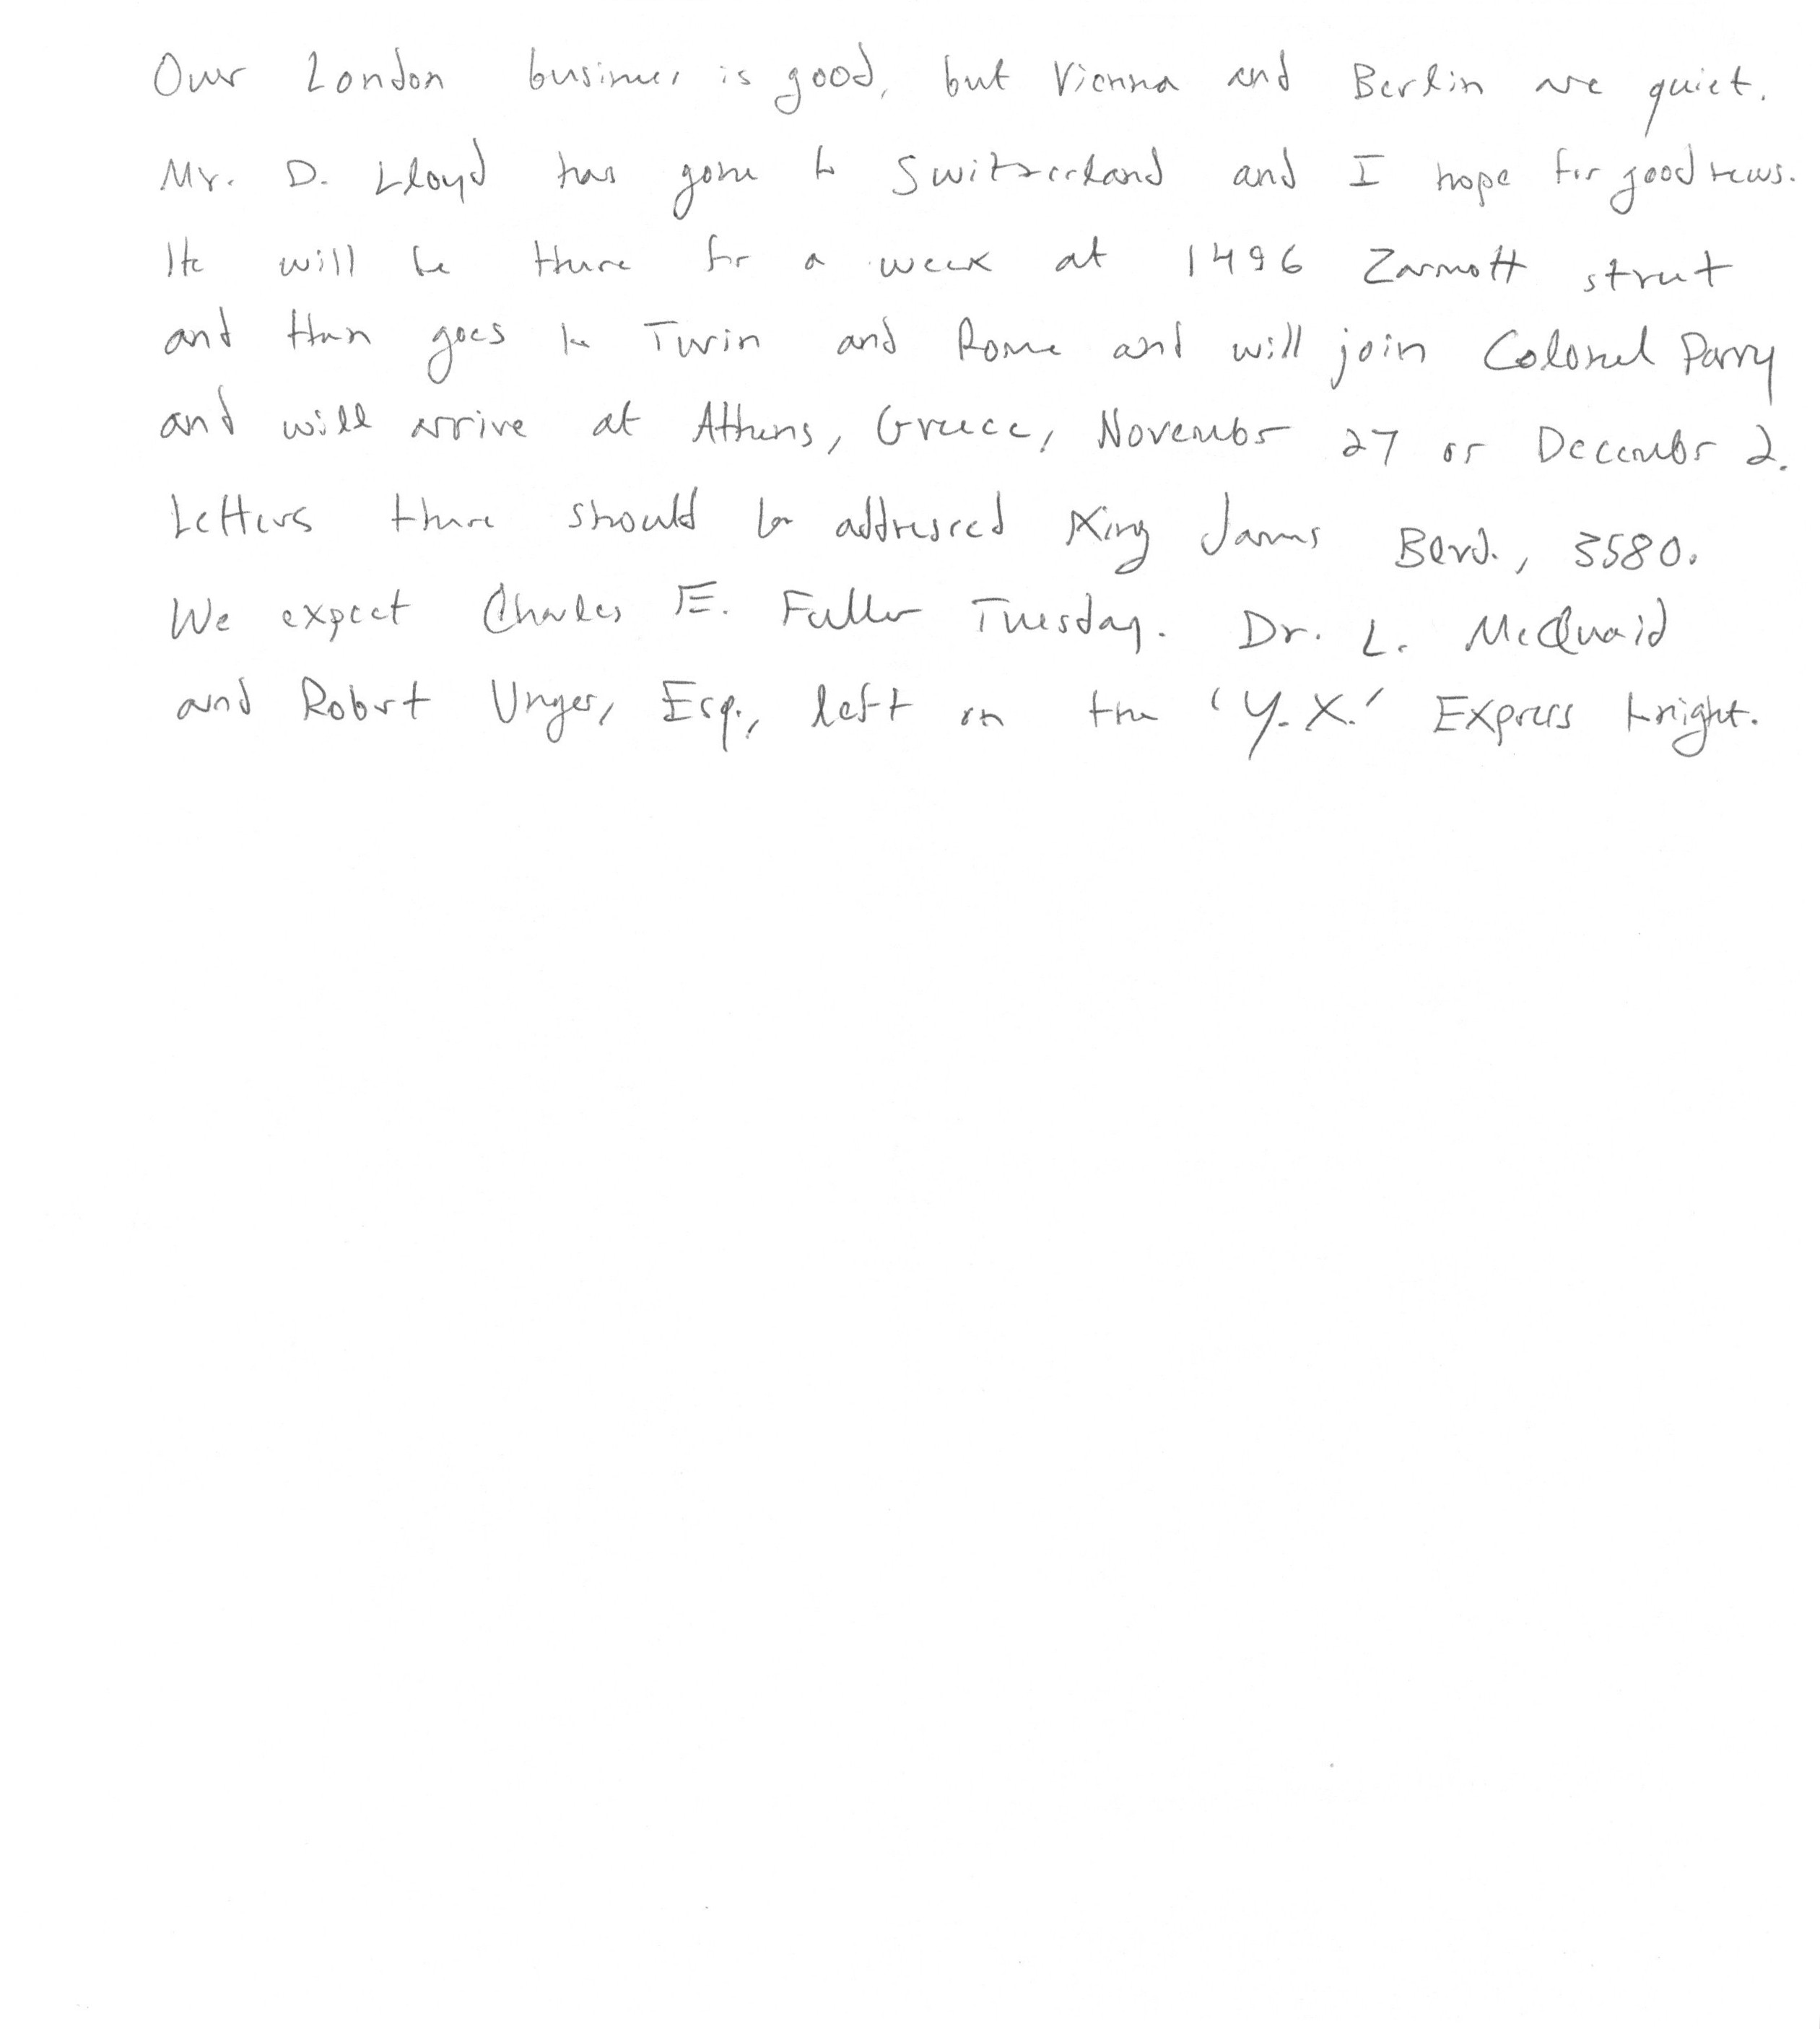 Our London business is good, but Vienna and Berlin are quiet.
Mr. D. Lloyd has gone to Switzerland and I hope for good news.
He will be there for a week at 1496 Zarmott street
and then goes to Turin and Rome and will join Colonel Parry
and will arrive at Athens, Greece, November 27 or December 2.
Letters there should be addressed King James Blvd., 3580.
We expect Charles E. Fuller Tuesday. Dr. L. McQuaid
and Robert Unger, Esq., left on the 'Y.X.' Express tonight.